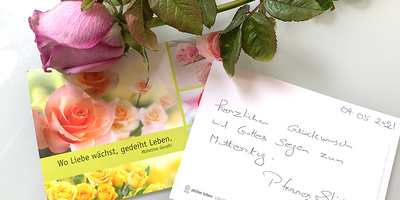 Wo Liebe wächst, gedeiht Leben.
Mahatma Gandhi
09.05.2021
Herzlichen Glückwunsch
und Gottes Segen zum
Muttertag.
Pfarrer